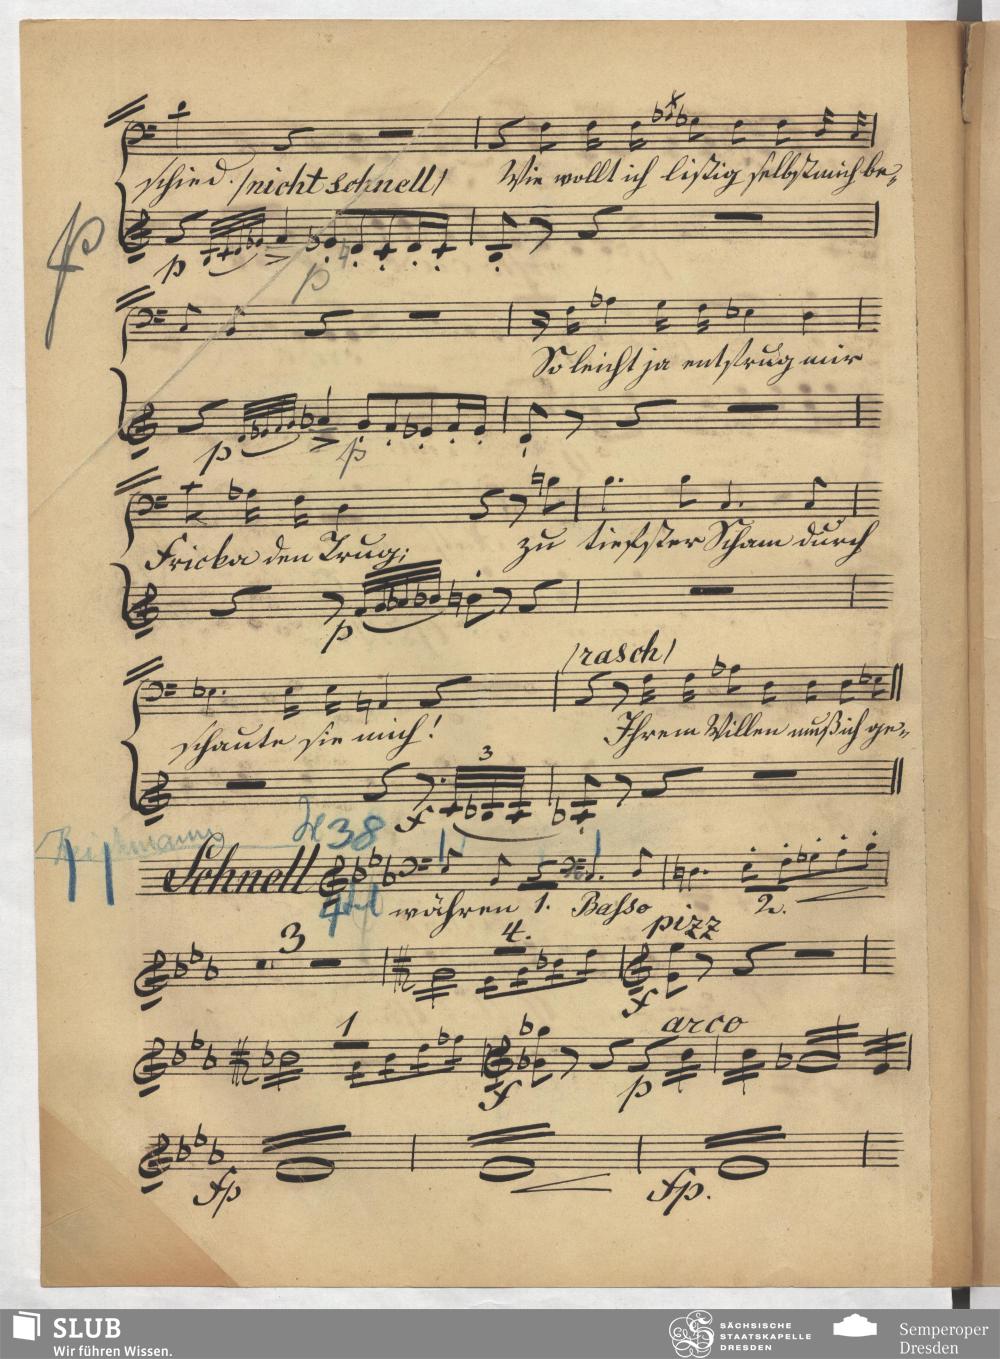 schied. (nicht schnell) Wie wollt ich listig selbst mich be-
p p p
So leicht ja entfrug mir
p p
Fricka den Trug; zu tiefster Scham durch
p
(rasch)
schaute sie mich! Ihrem Willen muß ich ge-
3
f
38
Schnell währen 1. Basso 2.
pizz
3 4.
f
1 arco
f p
fp fp.
SLUB
Wir führen Wissen.
SÄCHSISCHE
STAATSKAPELLE
DRESDEN
Semperoper
Dresden